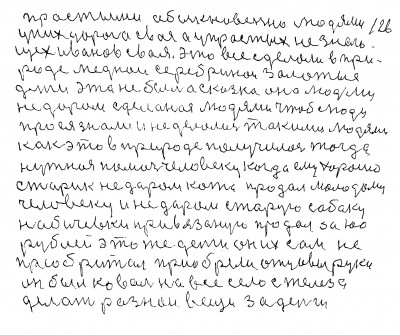 простыми обыкновенно людями 126
у них дорога своя а у простых не знаю
щех Иванов своя. Это все сделали в при-
роде медной серебриной золотыя
дети эта не была а сказка она людми
не даром сделаная людями чтоб люди
про ея знали и не делалис такими людями
как это в природе получился тогда
нужная помоч человеку когда ему хорошо
старик не даром кота продал молодому
человеку и не даром старую собаку
на бичевки привязаную продал за 100
рублей это же дети он их сам не
преобритал приобрели отцовы руки
он был ковал на все село с железа
делал разнаи вещи за денги